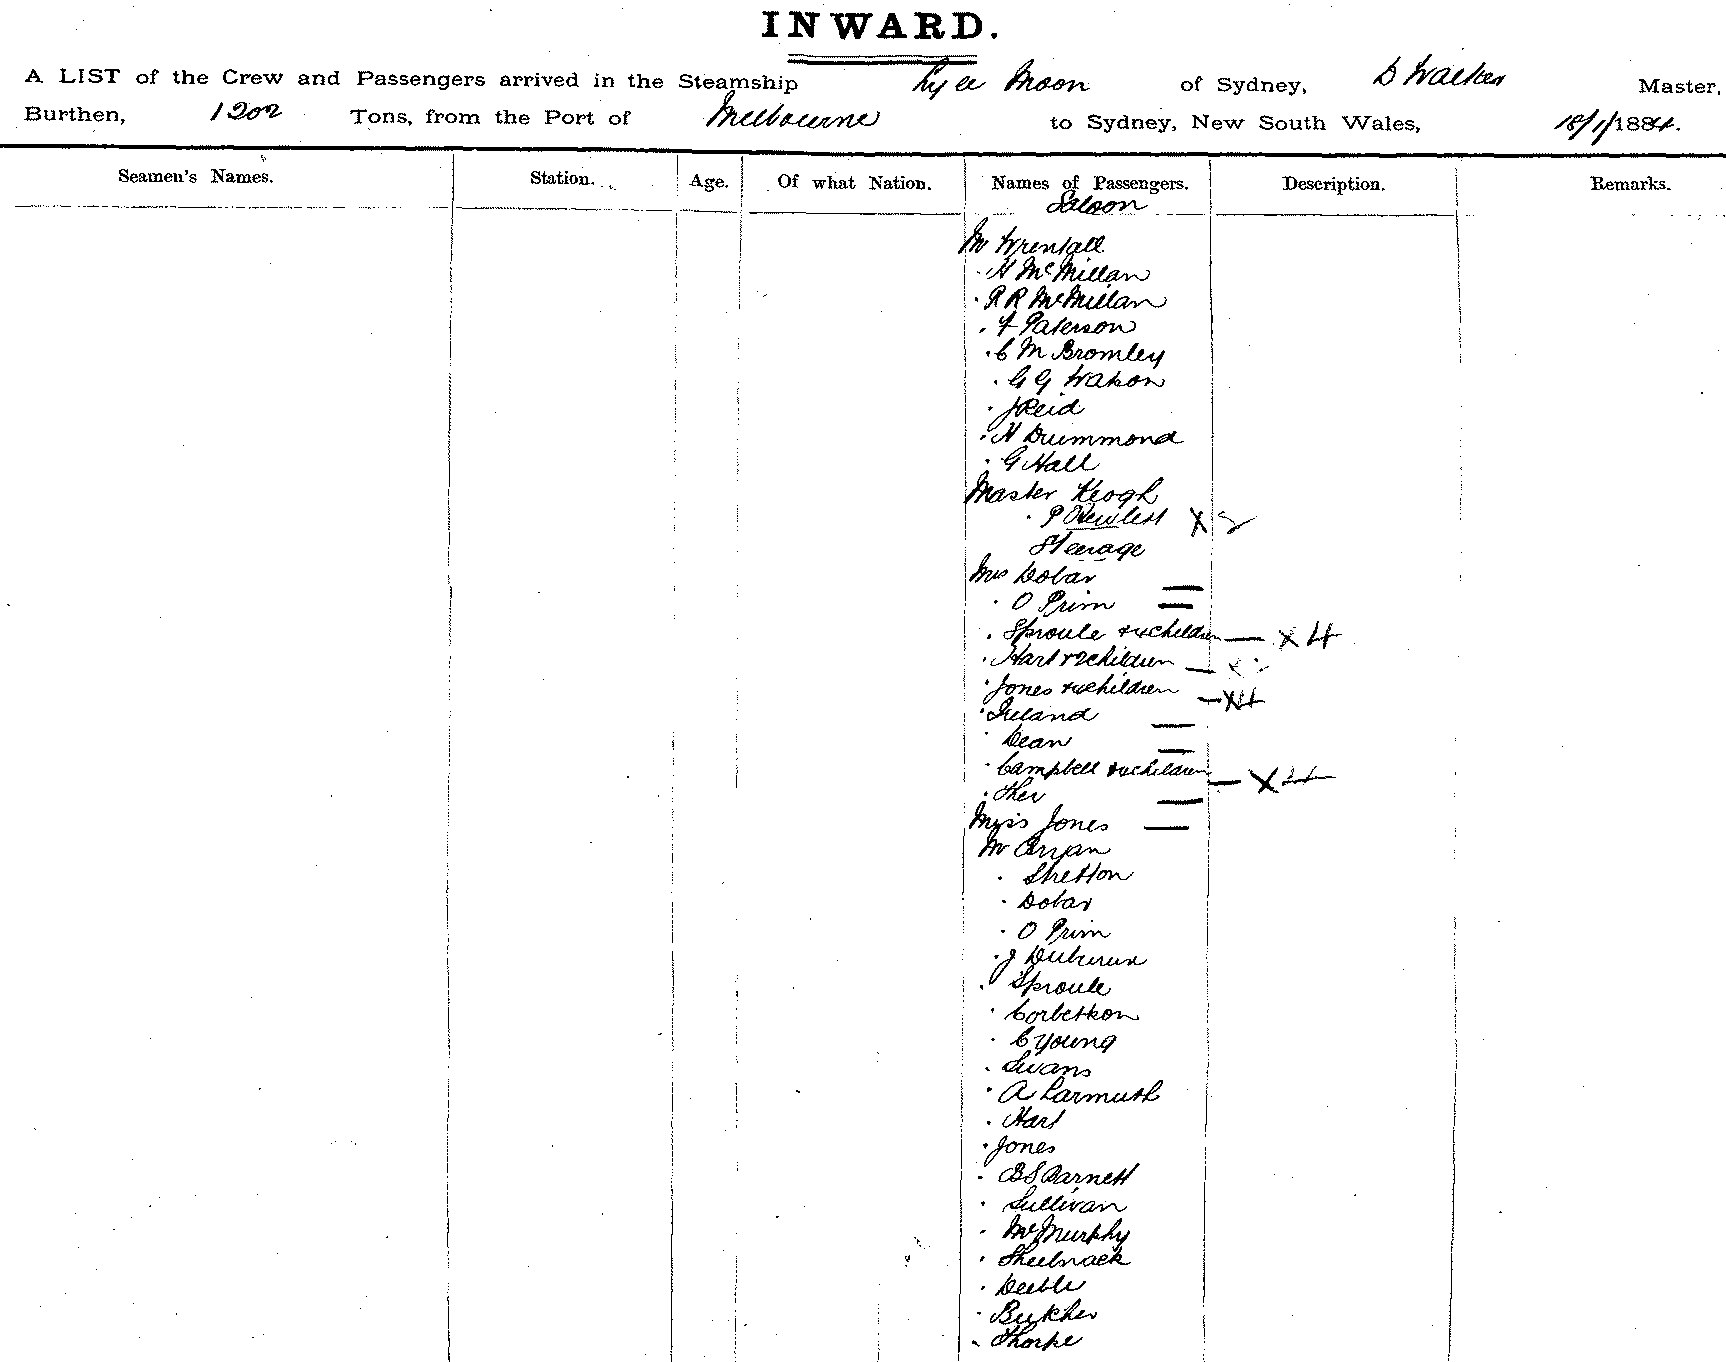 INWARD.
A LIST of the Crew and Passengers arrived in the Steamship Ly ee Moon of Sydney, D Walker Master,
Burthen, 1202 Tons, from the Port of Melbourne to Sydney, New South Wales, 18/1/1884.
Seamen's Names. Station. Age. Of what Nation. Names of Passengers. Description. Remarks.
Saloon
Mr Wrentall
" H McMillan
" R R McMillan
" F Paterson
" C M Bromley
" G G Watson
" J Reid
" H Drummond
" G Hall
Master Keogh
" P Hewlett X 2
Steerage
Mrs Dobar —
" O Prim —
" Sproule & 4 children — X 4
" Hart & 2 children — X 2
" Jones & 4 children — X 4
" Ireland —
" Dean —
" Campbell & 4 children — X 4
" Sher —
Miss Jones —
Mr Bryan
" Stretton
" Dobar
" O Prim
" J
" Sproule
" Corbetson
" C Young
" Swans
" A Larmuth
" Hart
" Jones
" B S Barnett
" Sullivan
" McMurphy
" Deeble
" Butcher
" Thorpe